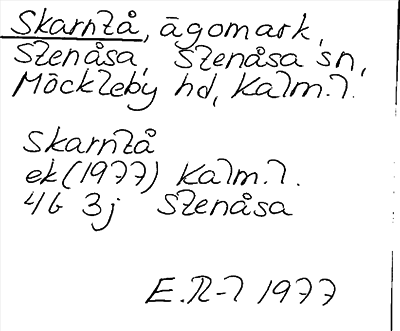 Skarntå, ägomark,
Stenåsa, Stenåsa sn,
Möckleby hd, Kalm.l.
Skarntå
ek (1977) Kalm.l.
4G 3j Stenåsa
E.R-l 1977